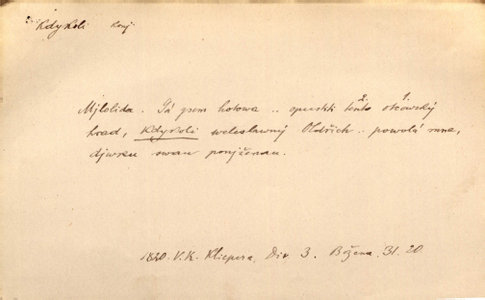 Kdykoli konj.
Mjlolida. Já jsem hotowa .. opustiti tento 2. otcowský 1.
hrad, kdykoli weleslawný Oldřich .. powolá mne,
djwku swau ponjženau.
1820 V. K. Klicpera, Div. 3. Božena, 31. 20